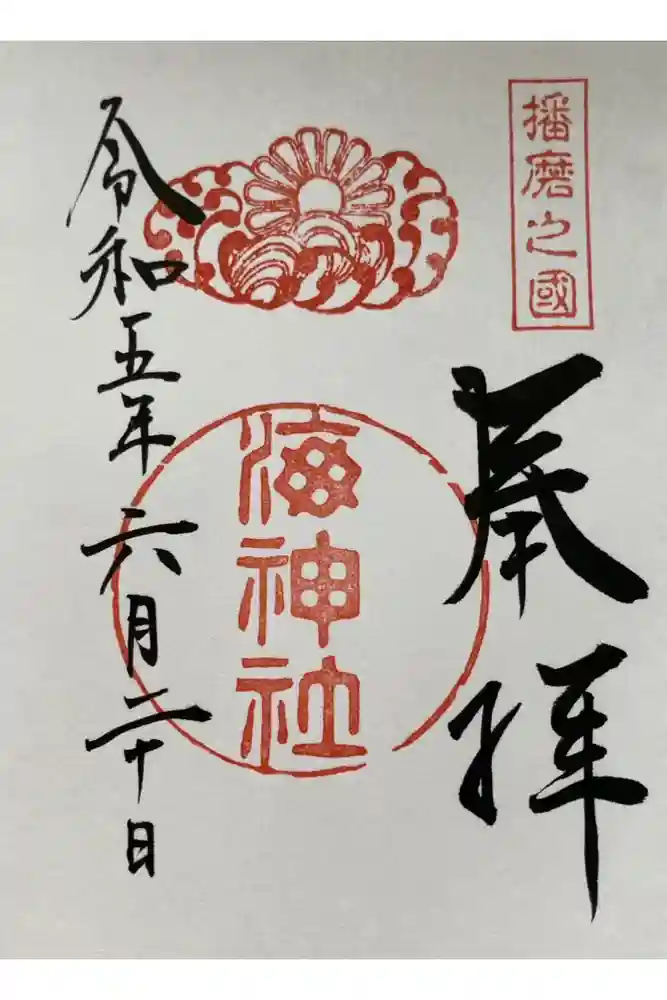 播磨之國
奉拝
海神社
令和五年六月二十日